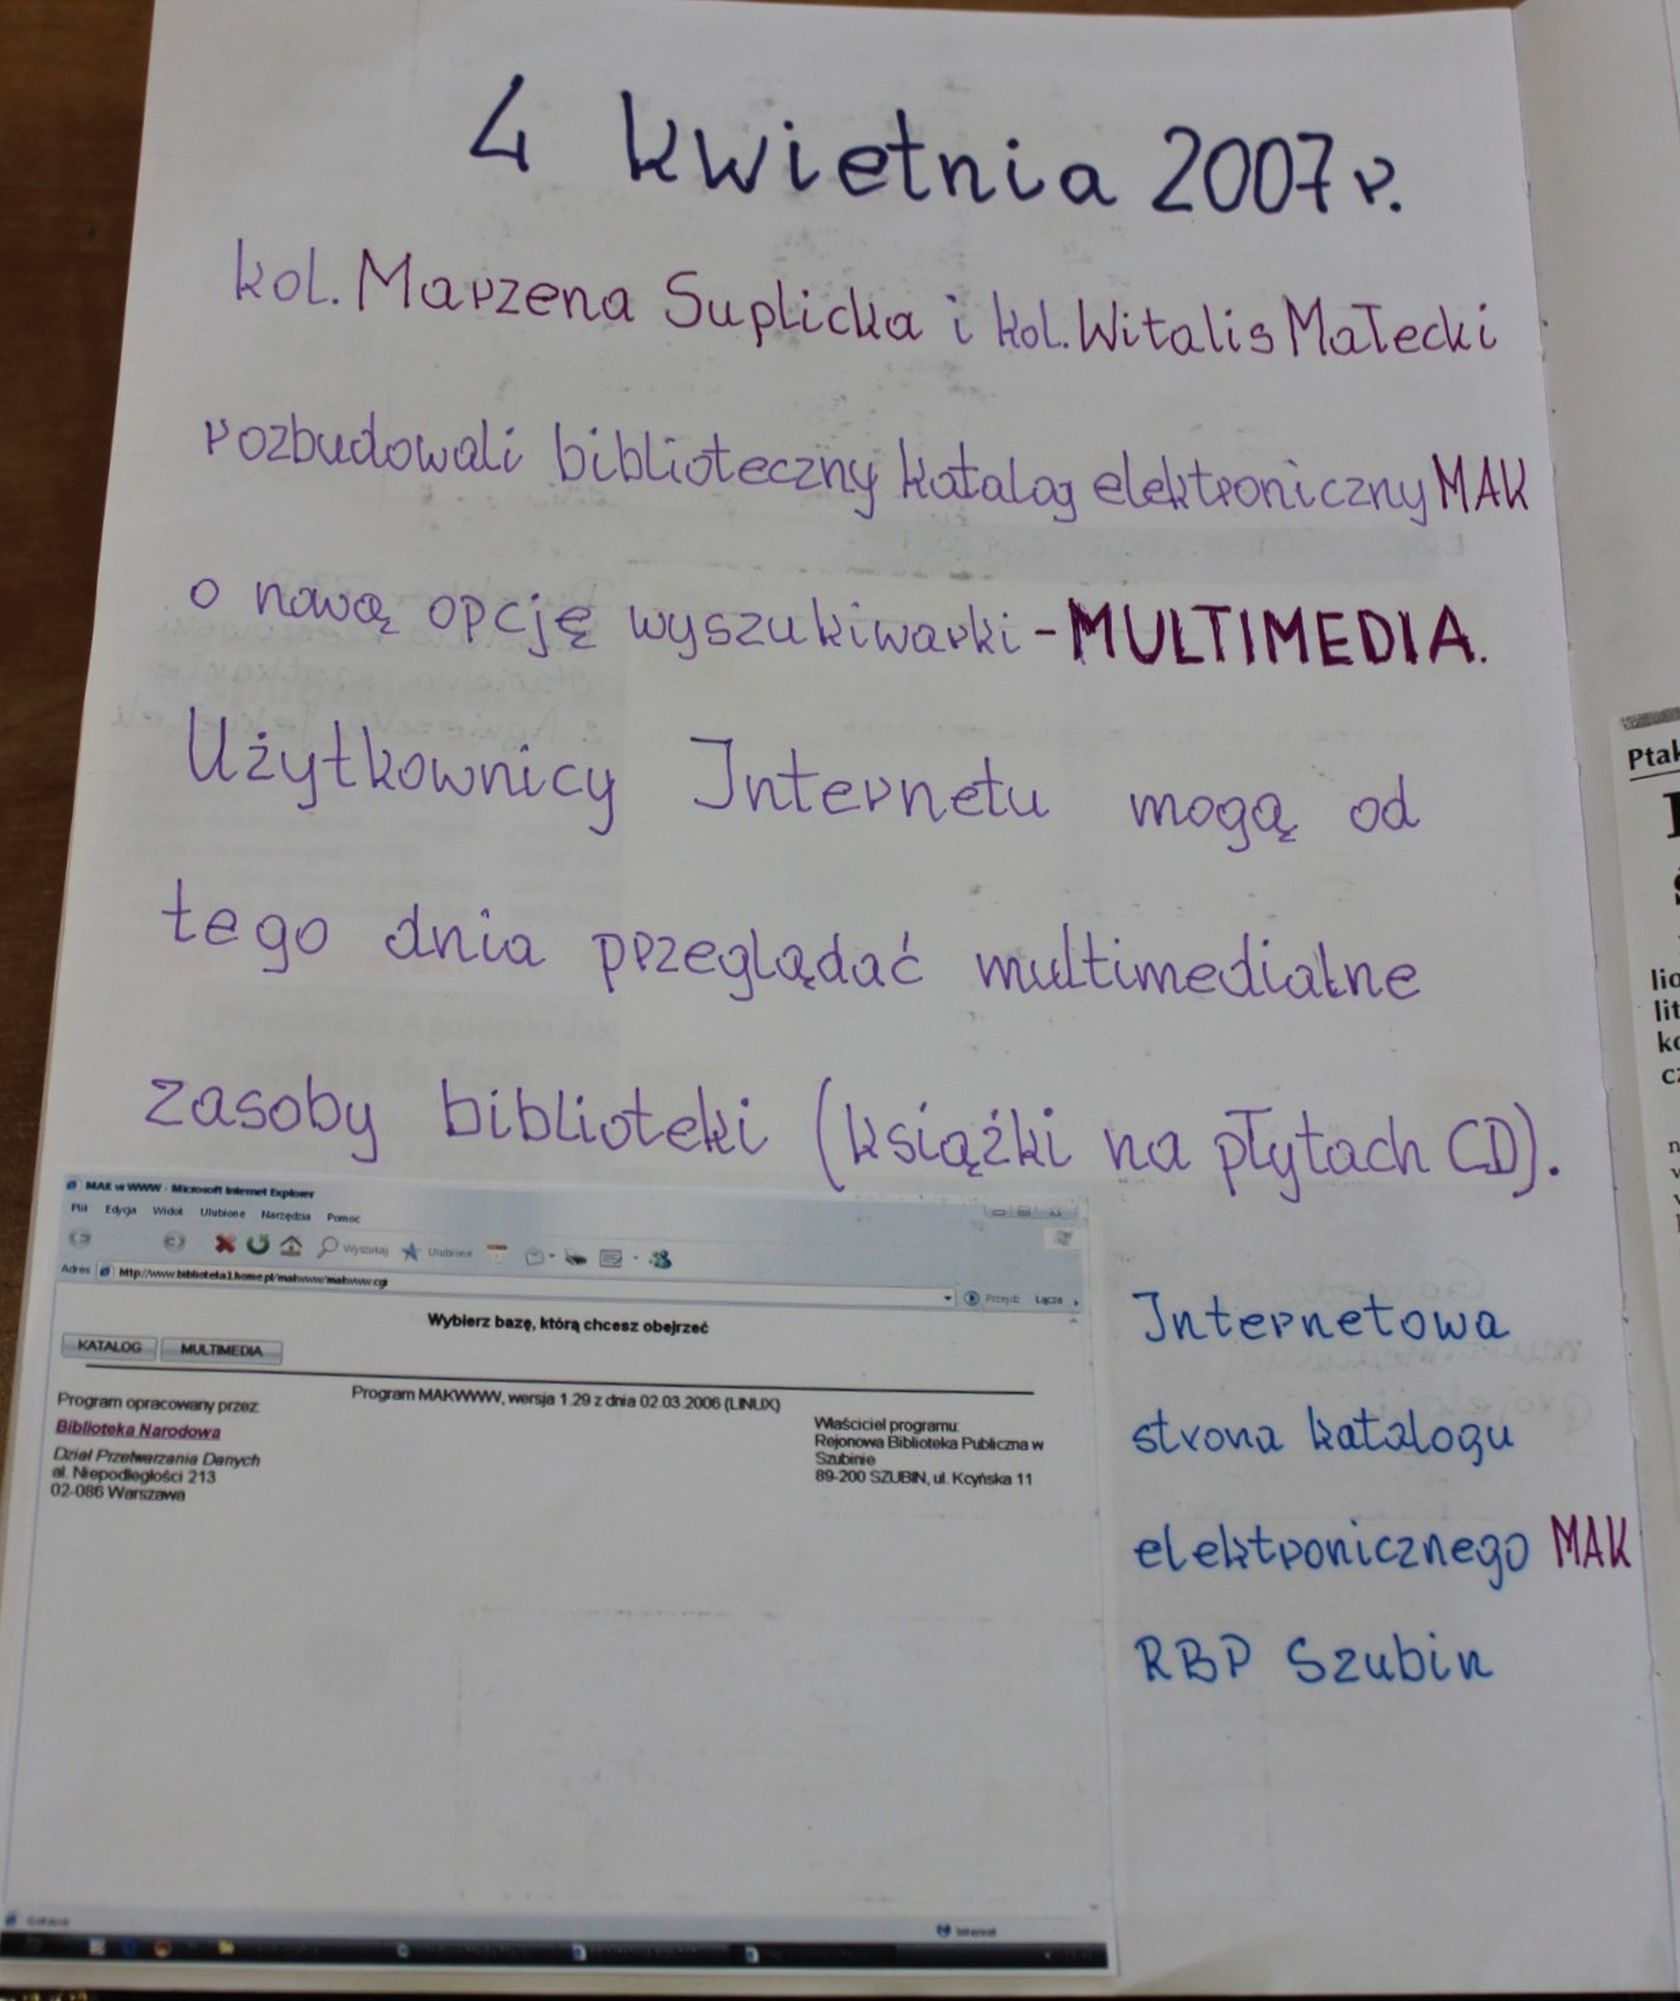 4 kwietnia 2007 r.
kol. Marzena Suplicka i kol. Witalis Małecki
rozbudowali biblioteczny katalog elektroniczny MAK
o nową opcję wyszukiwarki - MULTIMEDIA.
Użytkownicy Internetu mogą od
tego dnia przeglądać multimedialne
zasoby biblioteki (książki na płytach CD).
MAK w WWW - Microsoft Internet Explorer
Plik Edycja Widok Ulubione Narzędzia Pomoc
Wyszukaj Ulubione
Adres http://www.biblioteka1.home.pl/makwww/makwww.cgi Przejdź Łącza
Wybierz bazę, którą chcesz obejrzeć
KATALOG MULTIMEDIA
Program MAKWWW, wersja 1.29 z dnia 02.03.2006 (LINUX)
Program opracowany przez:
Biblioteka Narodowa
Dział Przetwarzania Danych
al. Niepodległości 213
02-086 Warszawa
Właściciel programu:
Rejonowa Biblioteka Publiczna w
Szubinie
89-200 SZUBIN, ul. Kcyńska 11
Internet
Internetowa
strona katalogu
elektronicznego MAK
RBP Szubin
Ptak
lio
lit